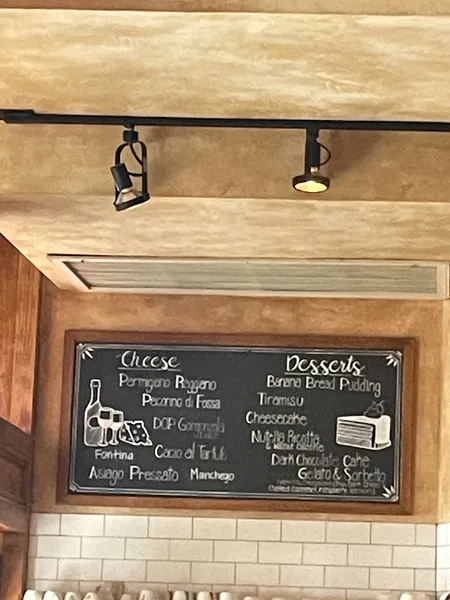 Cheese
Parmigiano Reggiano
Pecorino di Fossa
DOP Gorgonzola
Fontina
Cacio al Tartufo
Asiago Pressato
Manchego
Desserts
Banana Bread Pudding
Tiramisu
Cheesecake
Nutella Ricotta
Dark Chocolate Cake
Gelato & Sorbetto